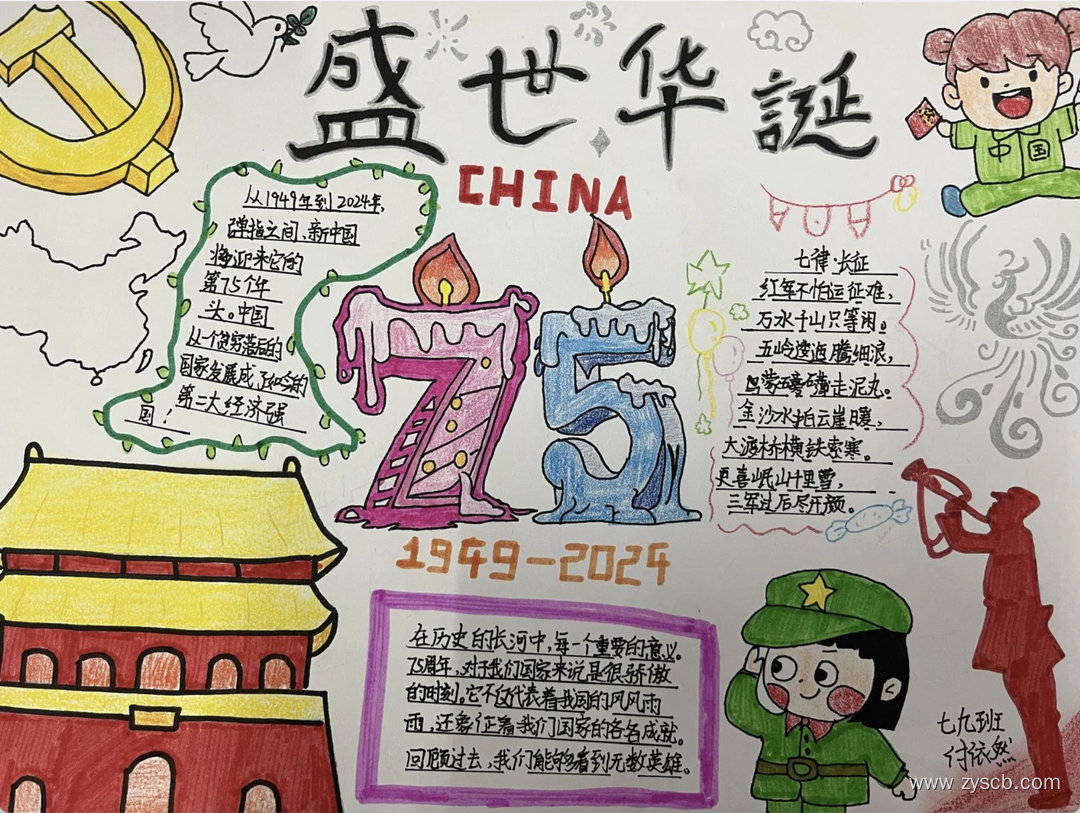 盛世华誕
CHINA
中国
从1949年到2024年,
弹指之间、新中国
将迎来它的
第75个年
头。中国
从一个贫穷落后的
国家发展成了如今的
第二大经济强
国!
75
1949-2024
七律·长征
红军不怕远征难,
万水千山只等闲。
五岭逶迤腾细浪,
乌蒙磅礴走泥丸。
金沙水拍云崖暖,
大渡桥横铁索寒。
更喜岷山千里雪,
三军过后尽开颜。
在历史的长河中,每一个重要的意义。
75周年,对于我们国家来说是很骄傲
的时刻。它不仅代表着我国的风风雨
雨,还象征着我们国家的各名成就。
回顾过去,我们能够看到无数英雄。
七九班
付依然
www.zyscb.com